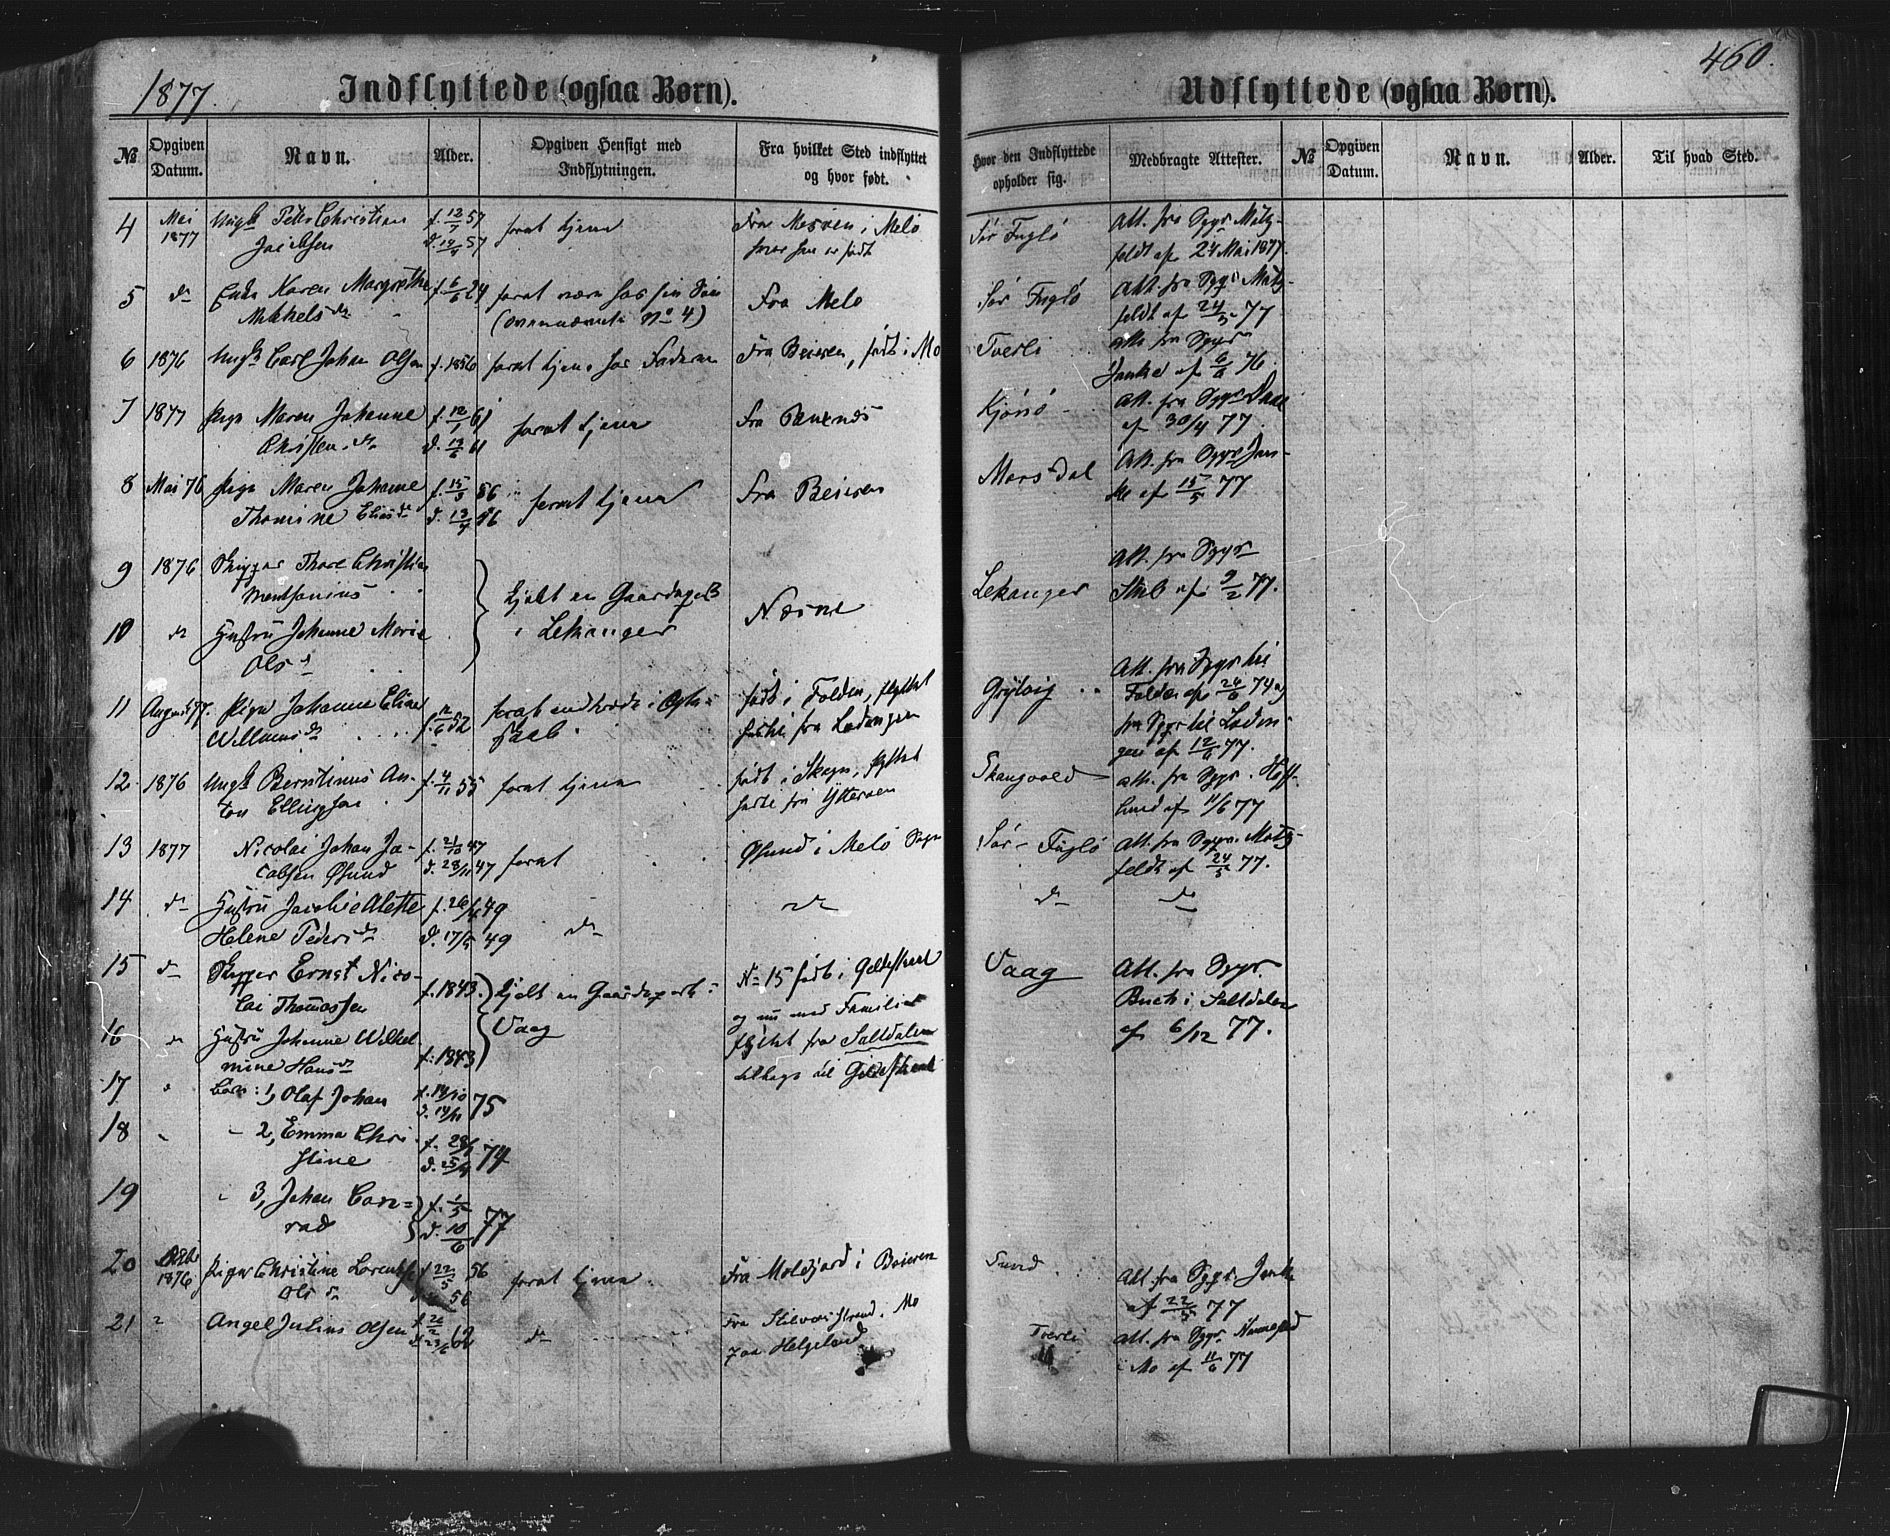 1877.
Indflyttede (ogsaa Børn).
Udflyttede (ogsaa Børn).
460.
№
Opgiven Datum.
Navn.
Alder.
Opgiven Hensigt med Indflytningen.
Fra hvilket Sted indflyttet og hvor født.
Hvor den Indflyttede opholder sig.
Medbragte Attester.
№
Opgiven Datum.
Navn.
Alder.
Til hvad Sted.
4 Mai 1877 Ungk Peter Christian f. 12/7 57 forat tjene Fra Mesøen i Melø Sør Fuglø Att. fra Spgr Mätz-
Jacobsen d. 57 hvor han er født feldt af 24 Mai 1877.
5 do Enke Karen Margrethe f. 6/6 24 forat være hos sin Søn Fra Melø Sør Fuglø Att. fra Spgr Mätz-
Mikkelsdr (ovennævnte No 4) feldt af 24/5 77
6 1876 Ungk Carl Johan Olsen f. 1856 forat tjene hos Faderen Fra Beieren, født i Mo Tverli Att. fra Spgr
Janke af 6/6 76.
7 1877 Pige Maren Johanne f. 12/1 61 forat tjene Fra Kjøsø Att. fra Spgr
Christensdr d. 13/6 61 af 30/4 77.
8 Mai 76 Pige Maren Johanne f. 15/3 56 forat tjene Fra Beieren Morsdal Att. fra Spgr Jan-
Thomine Eliasdr d. 13/7 56 ke af 15/5 77
9 1876 Skipper Thore Christian kjøbt en Gaardspart Næsne Lekanger Att. fra Spgr
af 9/2 77.
10 do Hustru Johanne Marie i Lekanger
Olsd
11 August 77. Pige Johanne Eline f. 12/6 52 forat indtræde i Ægte- født i Folden, flyttet Att. fra Spgr til
skab. hertil fra Lødingen Folden af 24/6 74 og
fra Spgr til Lødin-
gen af 12/6 77.
12 1876 Ungk Berntinus An- f. 4/11 55 forat tjene født i Skogn, flyttet Skaugvold att. fra Spgr. Hoff-
ton Ellingsen hertil fra Ytterøen lund af 11/6 77
13 1877 Nicolai Johan Ja- f. 21/10 47 forat Øsund i Melø Sogn Sør-Fuglø Att. fra Spgr. Mätz-
cobsen Øsund d. 28/11 47 feldt af 24/5 77.
14 do Hustru Jacobie Alette f. 26/4 49 do do do
Helene Pedersdr d. 17/5 49 do
15 do Skipper Ernst Nico- f. 1843. kjøbt en Gaardspart i No 15 født i Gildeskaal Vaag Att. fra Spgr.
lai Thomassen Vaag og nu med Familie Buch i Saltdalen
16 do Hustru Johanne Wilhel- flyttet fra Saltdalen af 6/12 77.
mine Hansdr f. 1843 tilbage til Gildeskaal
17 Børn: 1, Olaf Johan f. 14/10 75
d. 14/11
18 - 2, Emma Chri- f. 28/1 74
stine d. 25/4
19 3, Johan Con- f. 1/5 77
rad d. 10/6
20 1876 Pige Christine Lorentse f. 22/5 56 forat tjene. Fra Moldjord i Beieren Sund Att fra Spgr. Janke
Olsdr 56 af 22/5 77
21 Angel Julius Olsen f. 26/2 62 do Fra Mo Tverli att. fra Spgr
d. 23/6 paa Helgeland i Mo af 11/6 77